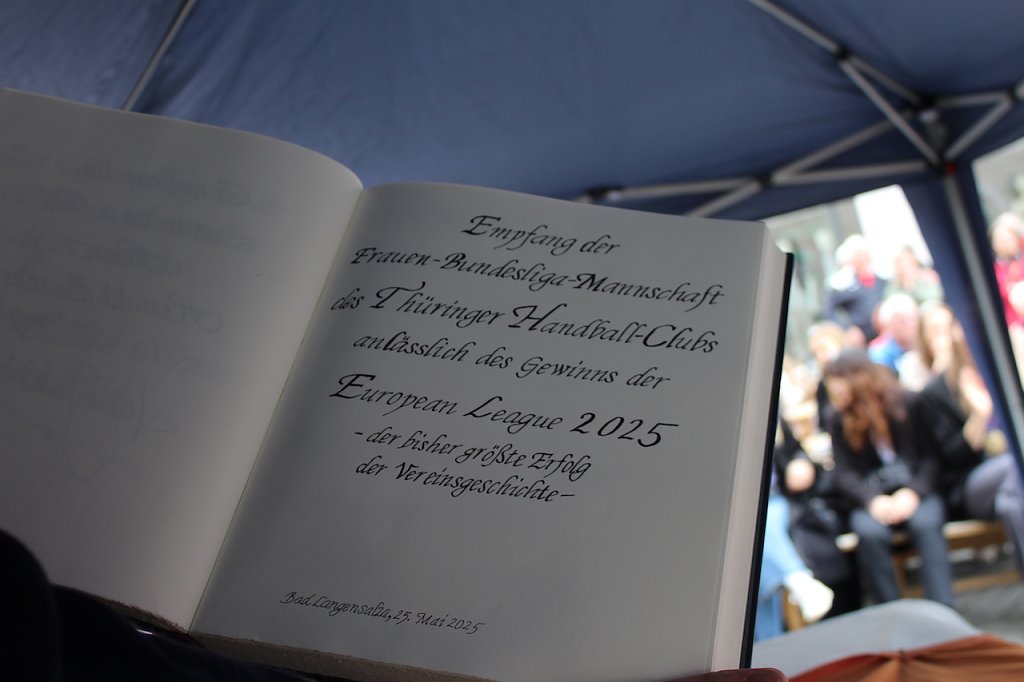 Empfang der
Frauen-Bundesliga-Mannschaft
des Thüringer Handball-Clubs
anlässlich des Gewinns der
European League 2025
- der bisher größte Erfolg
der Vereinsgeschichte -
Bad Langensalza, 25. Mai 2025